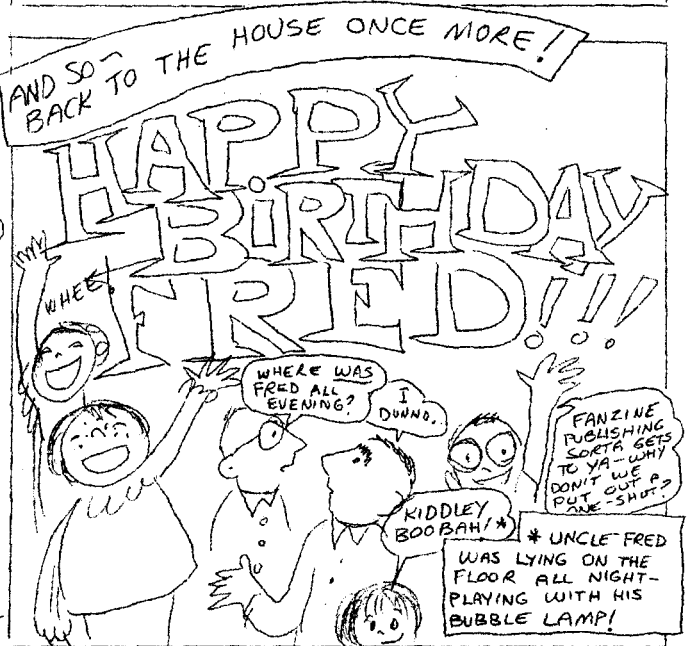 AND SO—
BACK TO THE HOUSE ONCE MORE!
HAPPY
BIRTHDAY
FRED!!!
WHEE!
WHERE WAS
FRED ALL
EVENING?
I
DUNNO.
FANZINE
PUBLISHING
SORTA GETS
TO YA—WHY
DON'T WE
PUT OUT A
ONE-SHOT?
KIDDLEY
BOOBAH!*
* UNCLE FRED
WAS LYING ON THE
FLOOR ALL NIGHT—
PLAYING WITH HIS
BUBBLE LAMP!